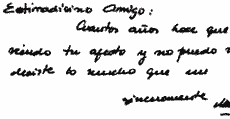 Estimadisimo Amigo:
Cuantos años hace que
siendo tu afecto y no puedo
decirte lo mucho que me
sinceramente